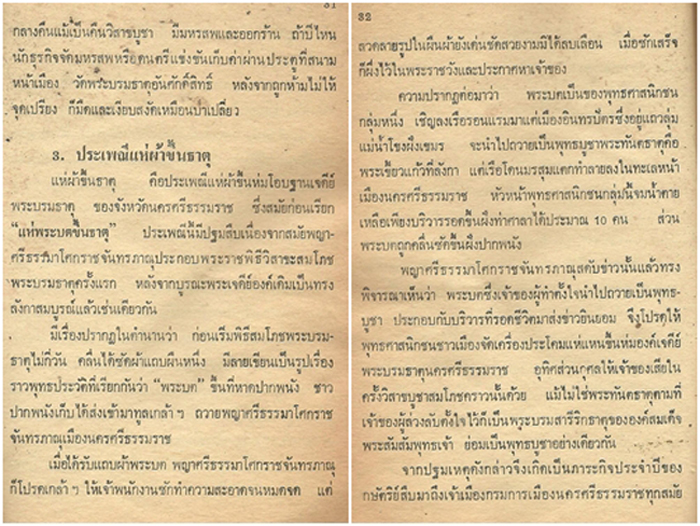 31
กลางคืนแม้เป็นคืนวิสาขบูชา มีมหรสพและออกร้าน ถ้าปีไหน
นักธุรกิจจัดมหรสพหรือดนตรีแข่งขันเก็บค่าผ่านประตูที่สนาม
หน้าเมือง วัดพระบรมธาตุอันศักดิ์สิทธิ์ หลังจากถูกห้ามไม่ให้
จุดเปรียง ก็มืดและเงียบสงัดเหมือนป่าเปลี่ยว
3. ประเพณีแห่ผ้าขึ้นธาตุ
แห่ผ้าขึ้นธาตุ คือประเพณีแห่ผ้าขึ้นห่มโอบฐานเจดีย์
พระบรมธาตุ ของจังหวัดนครศรีธรรมราช ซึ่งสมัยก่อนเรียก
“แห่พระบตขึ้นธาตุ” ประเพณีนี้มีปฐมสืบเนื่องจากสมัยพญา-
ศรีธรรมาโศกราชจันทรภาณุประกอบพระราชพิธีวิสาขะสมโภช
พระบรมธาตุครั้งแรก หลังจากบูรณะพระเจดีย์องค์เดิมเป็นทรง
ลังกาสมบูรณ์แล้วเช่นเดียวกัน
มีเรื่องปรากฏในตำนานว่า ก่อนเริ่มพิธีสมโภชพระบรม-
ธาตุไม่กี่วัน คลื่นได้ซัดผ้าแถบผืนหนึ่ง มีลายเขียนเป็นรูปเรื่อง
ราวพุทธประวัติที่เรียกกันว่า “พระบต” ขึ้นที่หาดปากพนัง ชาว
ปากพนังเก็บได้ส่งเข้ามาทูลเกล้า ฯ ถวายพญาศรีธรรมาโศกราช
จันทรภาณุเมืองนครศรีธรรมราช
เมื่อได้รับแถบผ้าพระบต พญาศรีธรรมาโศกราชจันทรภาณุ
ก็โปรดเกล้า ฯ ให้เจ้าพนักงานซักทำความสะอาดจนหมดจด แต่
32
ลวดลายรูปในผืนผ้ายังเด่นชัดสวยงามมิได้ลบเลือน เมื่อซักเสร็จ
ก็ผึ่งไว้ในพระราชวังและประกาศหาเจ้าของ
ความปรากฏต่อมาว่า พระบตเป็นของพุทธศาสนิกชน
กลุ่มหนึ่ง เชิญลงเรือรอนแรมมาแต่เมืองอินทรปัตรซึ่งอยู่แถวลุ่ม
แม่น้ำโขงฝั่งเขมร จะนำไปถวายเป็นพุทธบูชาพระทันตธาตุคือ
พระเขี้ยวแก้วที่ลังกา แต่เรือโดนมรสุมแตกทำลายลงในทะเลหน้า
เมืองนครศรีธรรมราช หัวหน้าพุทธศาสนิกชนกลุ่มนี้จมน้ำตาย
เหลือเพียงบริวารรอดขึ้นฝั่งท่าศาลาได้ประมาณ 10 คน ส่วน
พระบตถูกคลื่นซัดขึ้นฝั่งปากพนัง
พญาศรีธรรมาโศกราชจันทรภาณุสดับข่าวนั้นแล้วทรง
พิจารณาเห็นว่า พระบตซึ่งเจ้าของผู้ทำตั้งใจนำไปถวายเป็นพุทธ-
บูชา ประกอบกับบริวารที่รอดชีวิตมาส่งข่าวยินยอม จึงโปรดให้
พุทธศาสนิกชนชาวเมืองจัดเครื่องประโคมแห่แหนขึ้นห่มองค์เจดีย์
พระบรมธาตุนครศรีธรรมราช อุทิศส่วนกุศลให้เจ้าของเสียใน
ครั้งวิสาขบูชาสมโภชคราวนั้นด้วย แม้ไม่ใช่พระทันตธาตุตามที่
เจ้าของผู้ล่วงลับตั้งใจไว้ก็เป็นพระบรมสารีริกธาตุขององค์สมเด็จ
พระสัมสัมพุทธเจ้า ย่อมเป็นพุทธบูชาอย่างเดียวกัน
จากปฐมเหตุดังกล่าวจึงเกิดเป็นภาระกิจประจำปีของ
กษัตริย์สืบมาถึงเจ้าเมืองกรมการเมืองนครศรีธรรมราชทุกสมัย